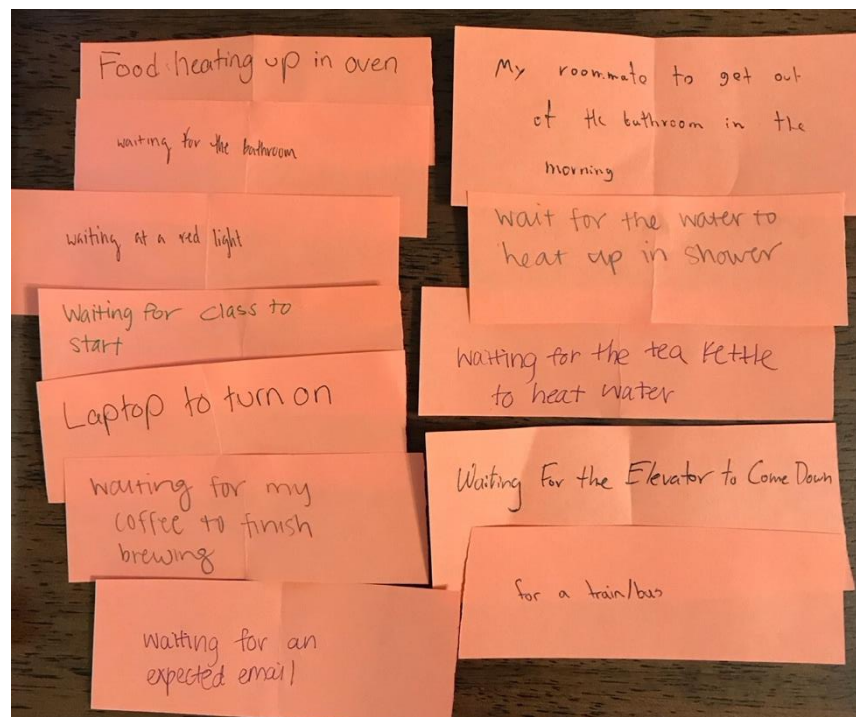 Food heating up in oven
waiting for the bathroom
waiting at a red light
Waiting for class to
start
Laptop to turn on
waiting for my
coffee to finish
brewing
waiting for an
expected email
My roommate to get out
of the bathroom in the
morning
wait for the water to
heat up in shower
waiting for the tea kettle
to heat water
Waiting For the Elevator to Come Down
for a train/bus